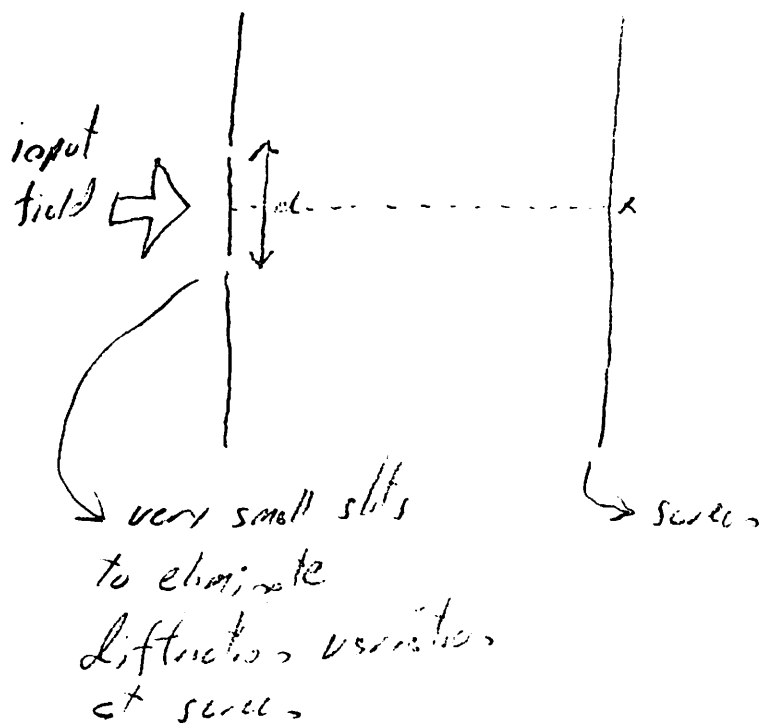 input
field
d
x
very small slits
to eliminate
diffraction variations
at screen
screen